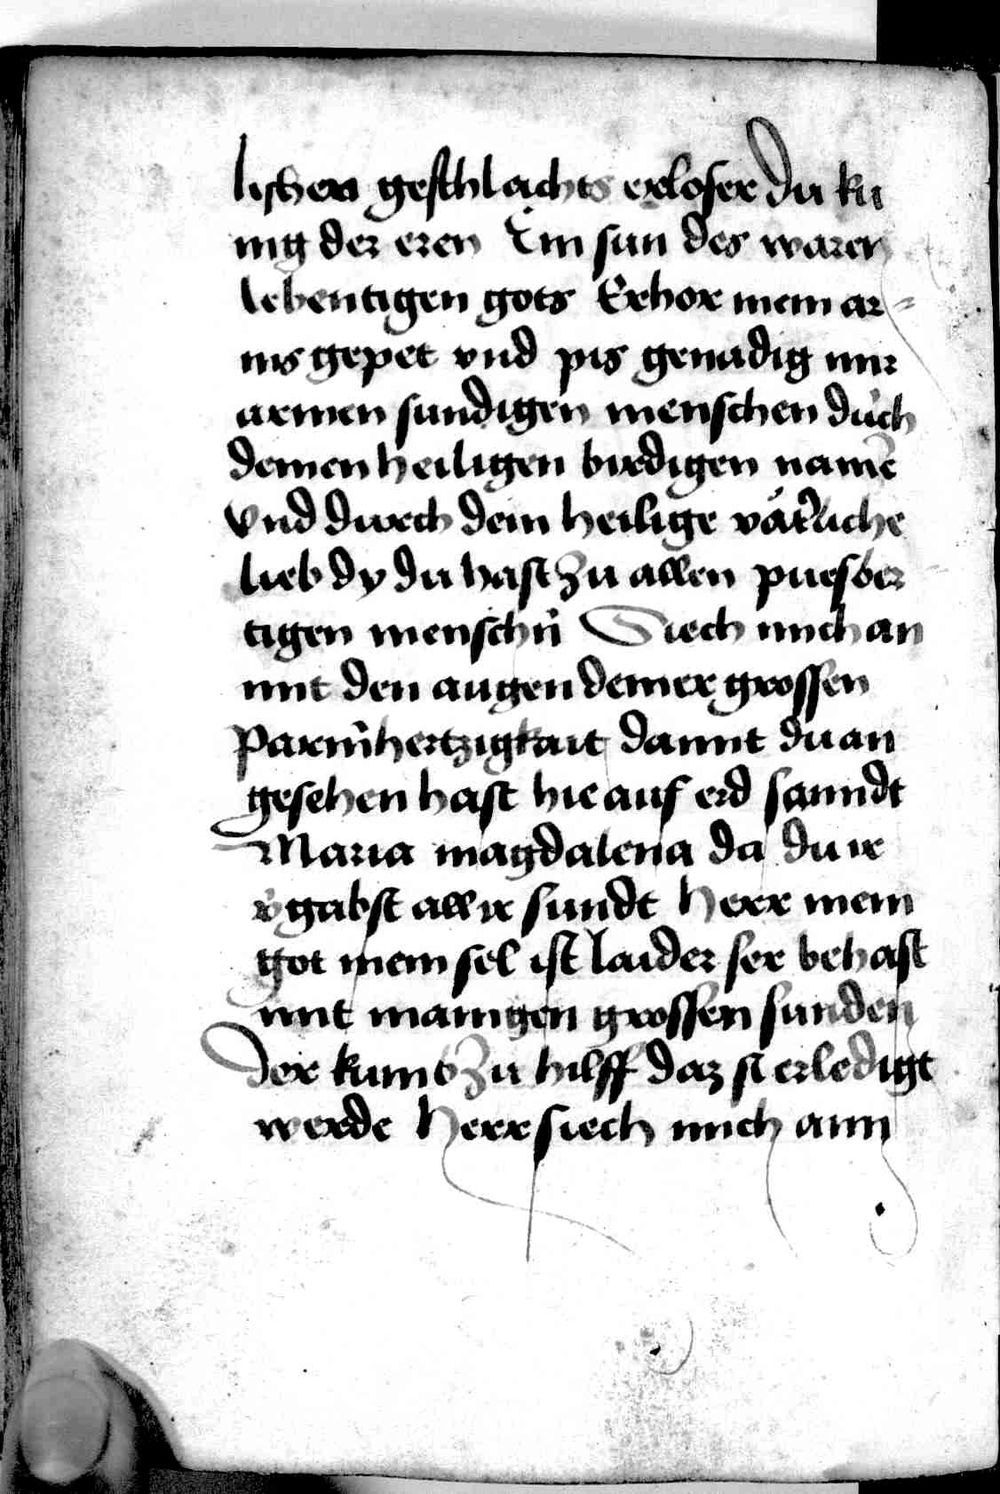 lischen geschlächts erloser du ku
nig der eren Ein sun des waren
lebentigen gots Erhor mein ar-
ms gepet vnd pis genadig mir
armen sundigen menschen durch
deinen heiligen birdigen namē
Vnd durch dein heilige väterliche
lieb dy du hast zu allen puesber
tigen menschn̄ Siech mich an
mit den augen deiner grossen
Parm̄hertzigkait damit du an
gesehen hast hie auf erd sanndt
Maria magdalena da du ir
v̓gabst all ir sundt Herr mein
got mein sel ist laider ser behaft
mit manigen grossen sunden
Der kumb zu hilff daz si erledigt
werde Herr siech mich ann